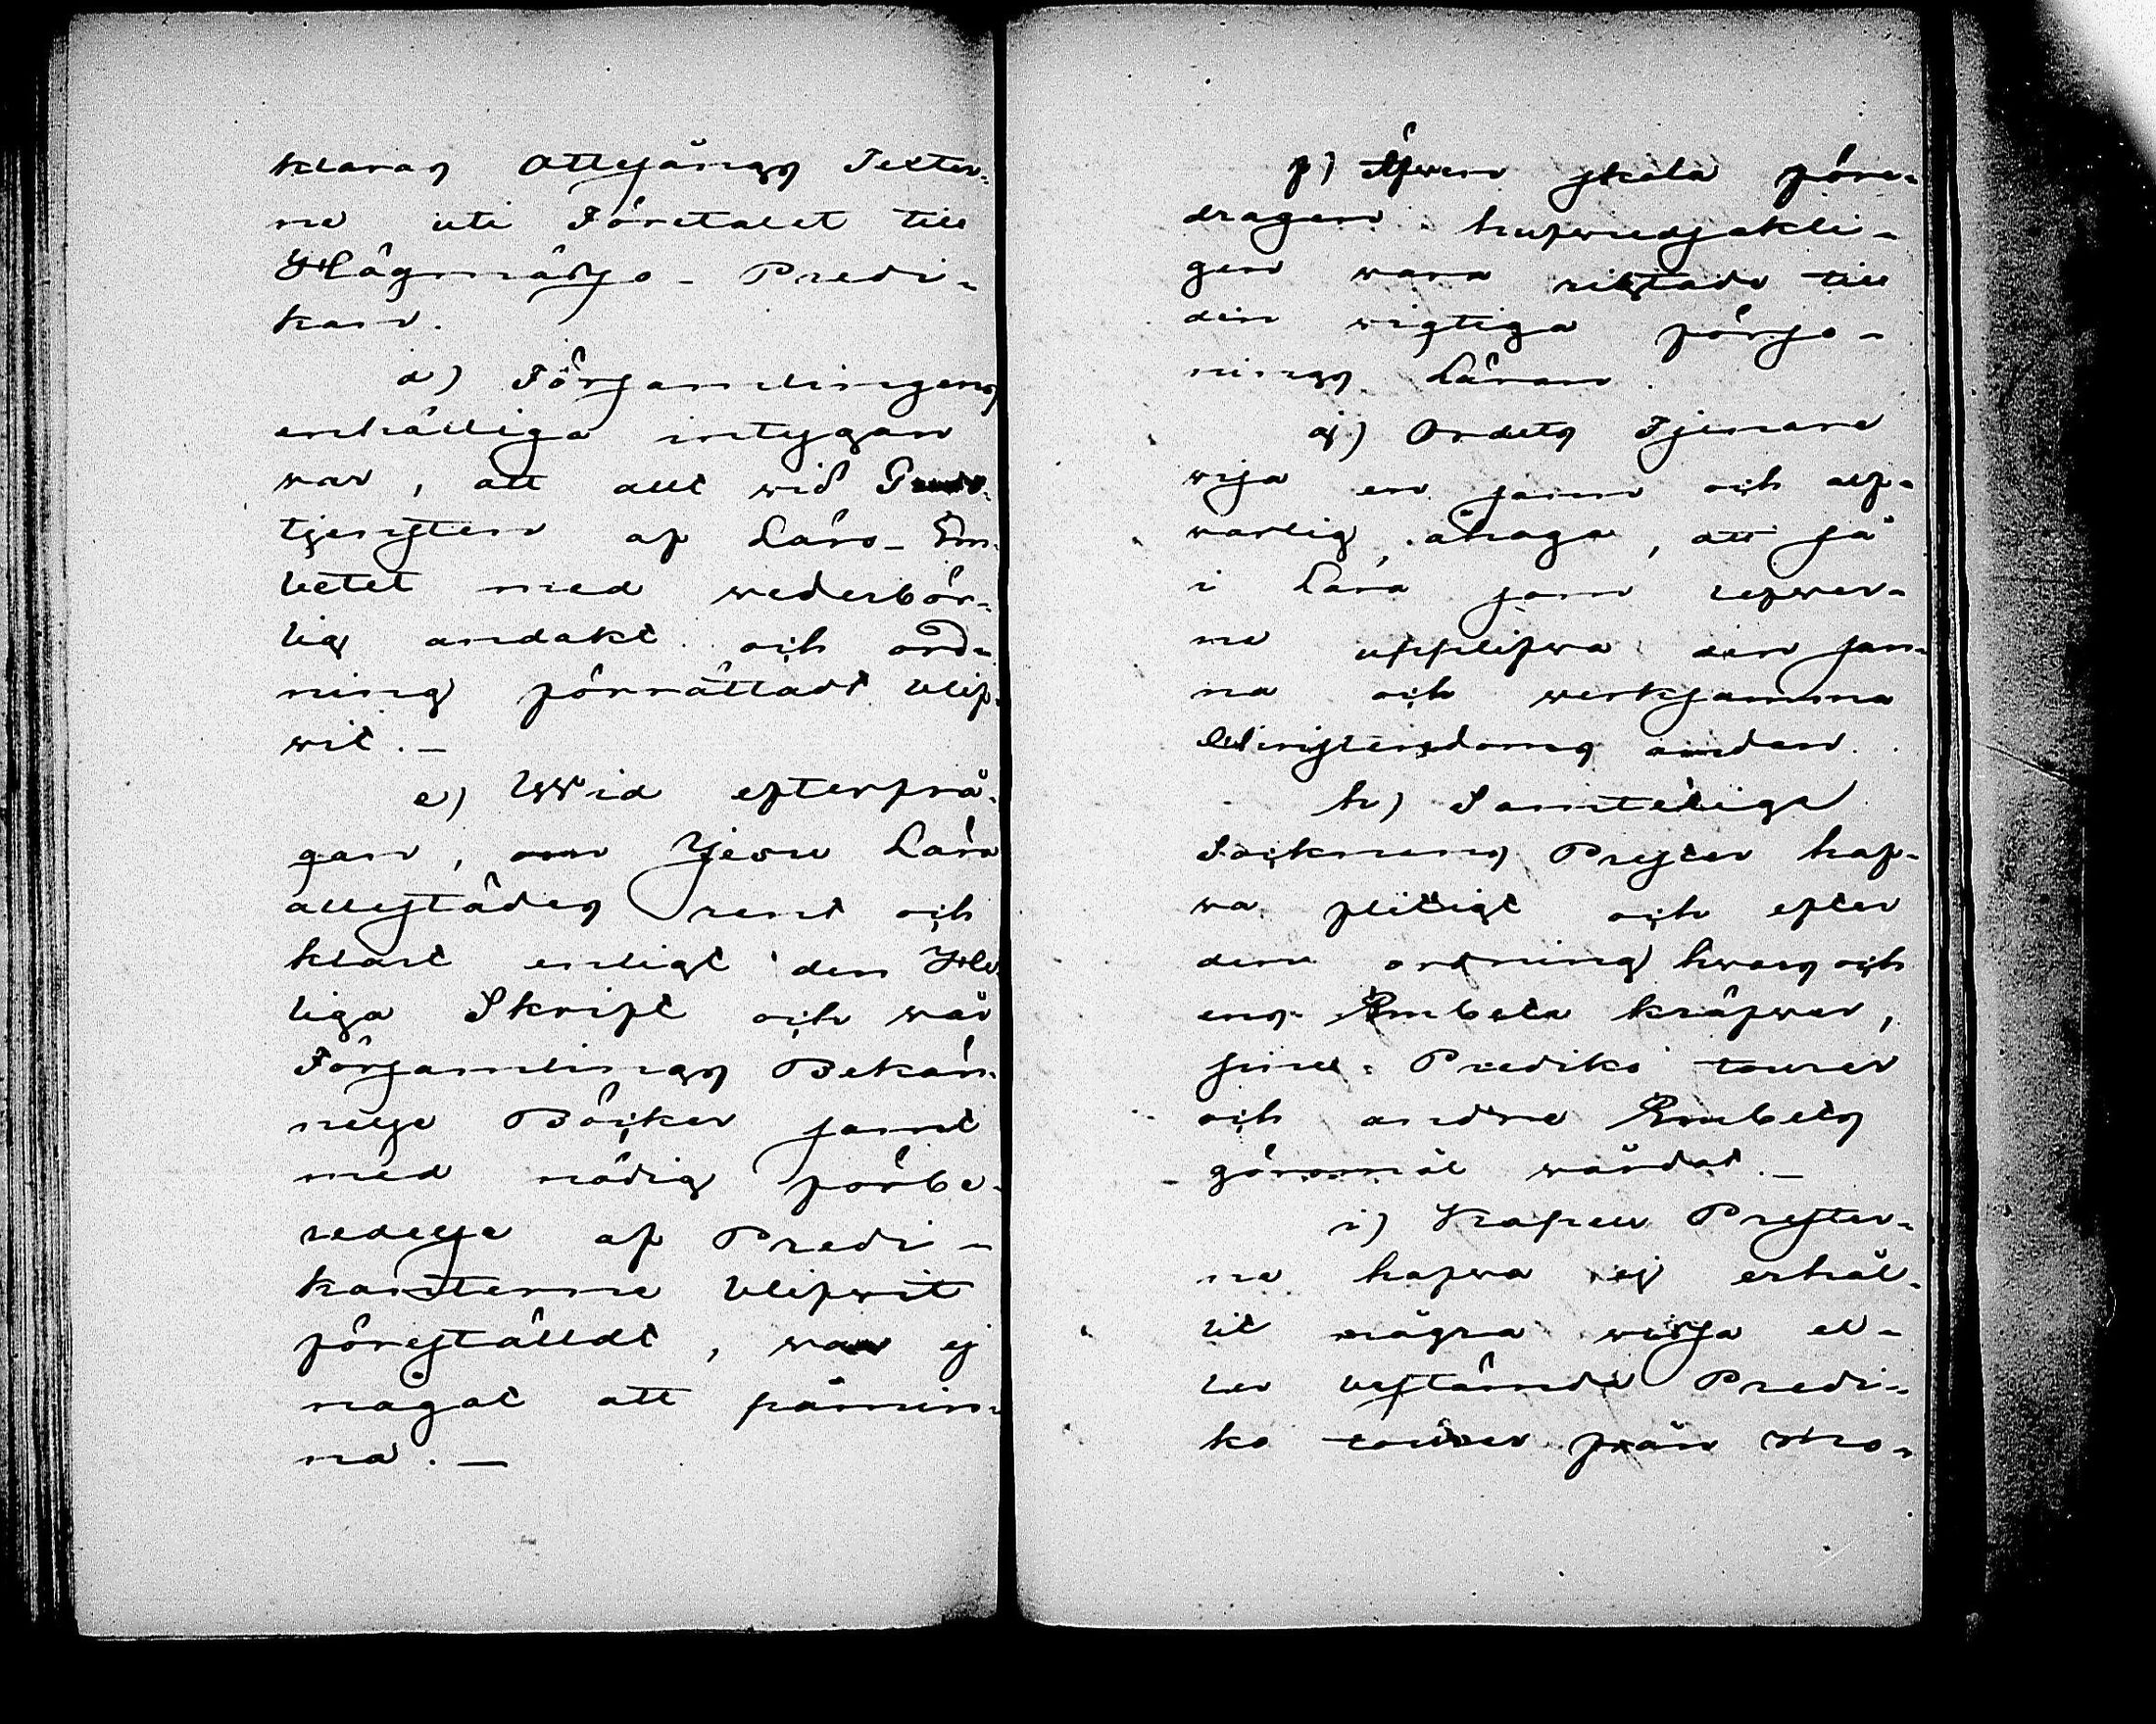 klaras Ottesångs Texter-
ne uti Företalet till
Högmässo- Predi-
kan.
d) Församlingens
enhälliga intygan
var, att allt wid Guds-
tjensten af Läro-Em-
betet med wederbör-
lig andakt och ord-
ning förrättadt blif-
wit. —
e) Wid efterfrå-
gan, om Jesu Lära
allestädes rent och
klart enligt den He-
liga Skrift och wår
Församlings Bekän-
nelse Böcker samt
med nödig förbe-
redelse af Predi-
kanterne blifwit
föreställdt, war ej
något att påmin-
na. —
f) Äfwen skola före-
dragen hufwudsakli-
gen wara riktade till
den wigtiga förso-
nings Läran.
g) Ordets Tjenare
wisa en sann och alf-
warlig åhåga, att så
i Lära som lefwer-
ne upplifwa den san-
na och werksamma
Christendoms andan.
h) Samtelige
Socknens Prester haf-
wa flitigt och efter
den ordning hwars och
ens Embete kräfwer,
sine Prediko tourer
och andre Embets
göromål wårdat. —
i) Kapell Prester-
ne hafwa ej erhål-
lit några wissa el-
ler bestämde Predi-
ko tourer från Mo-